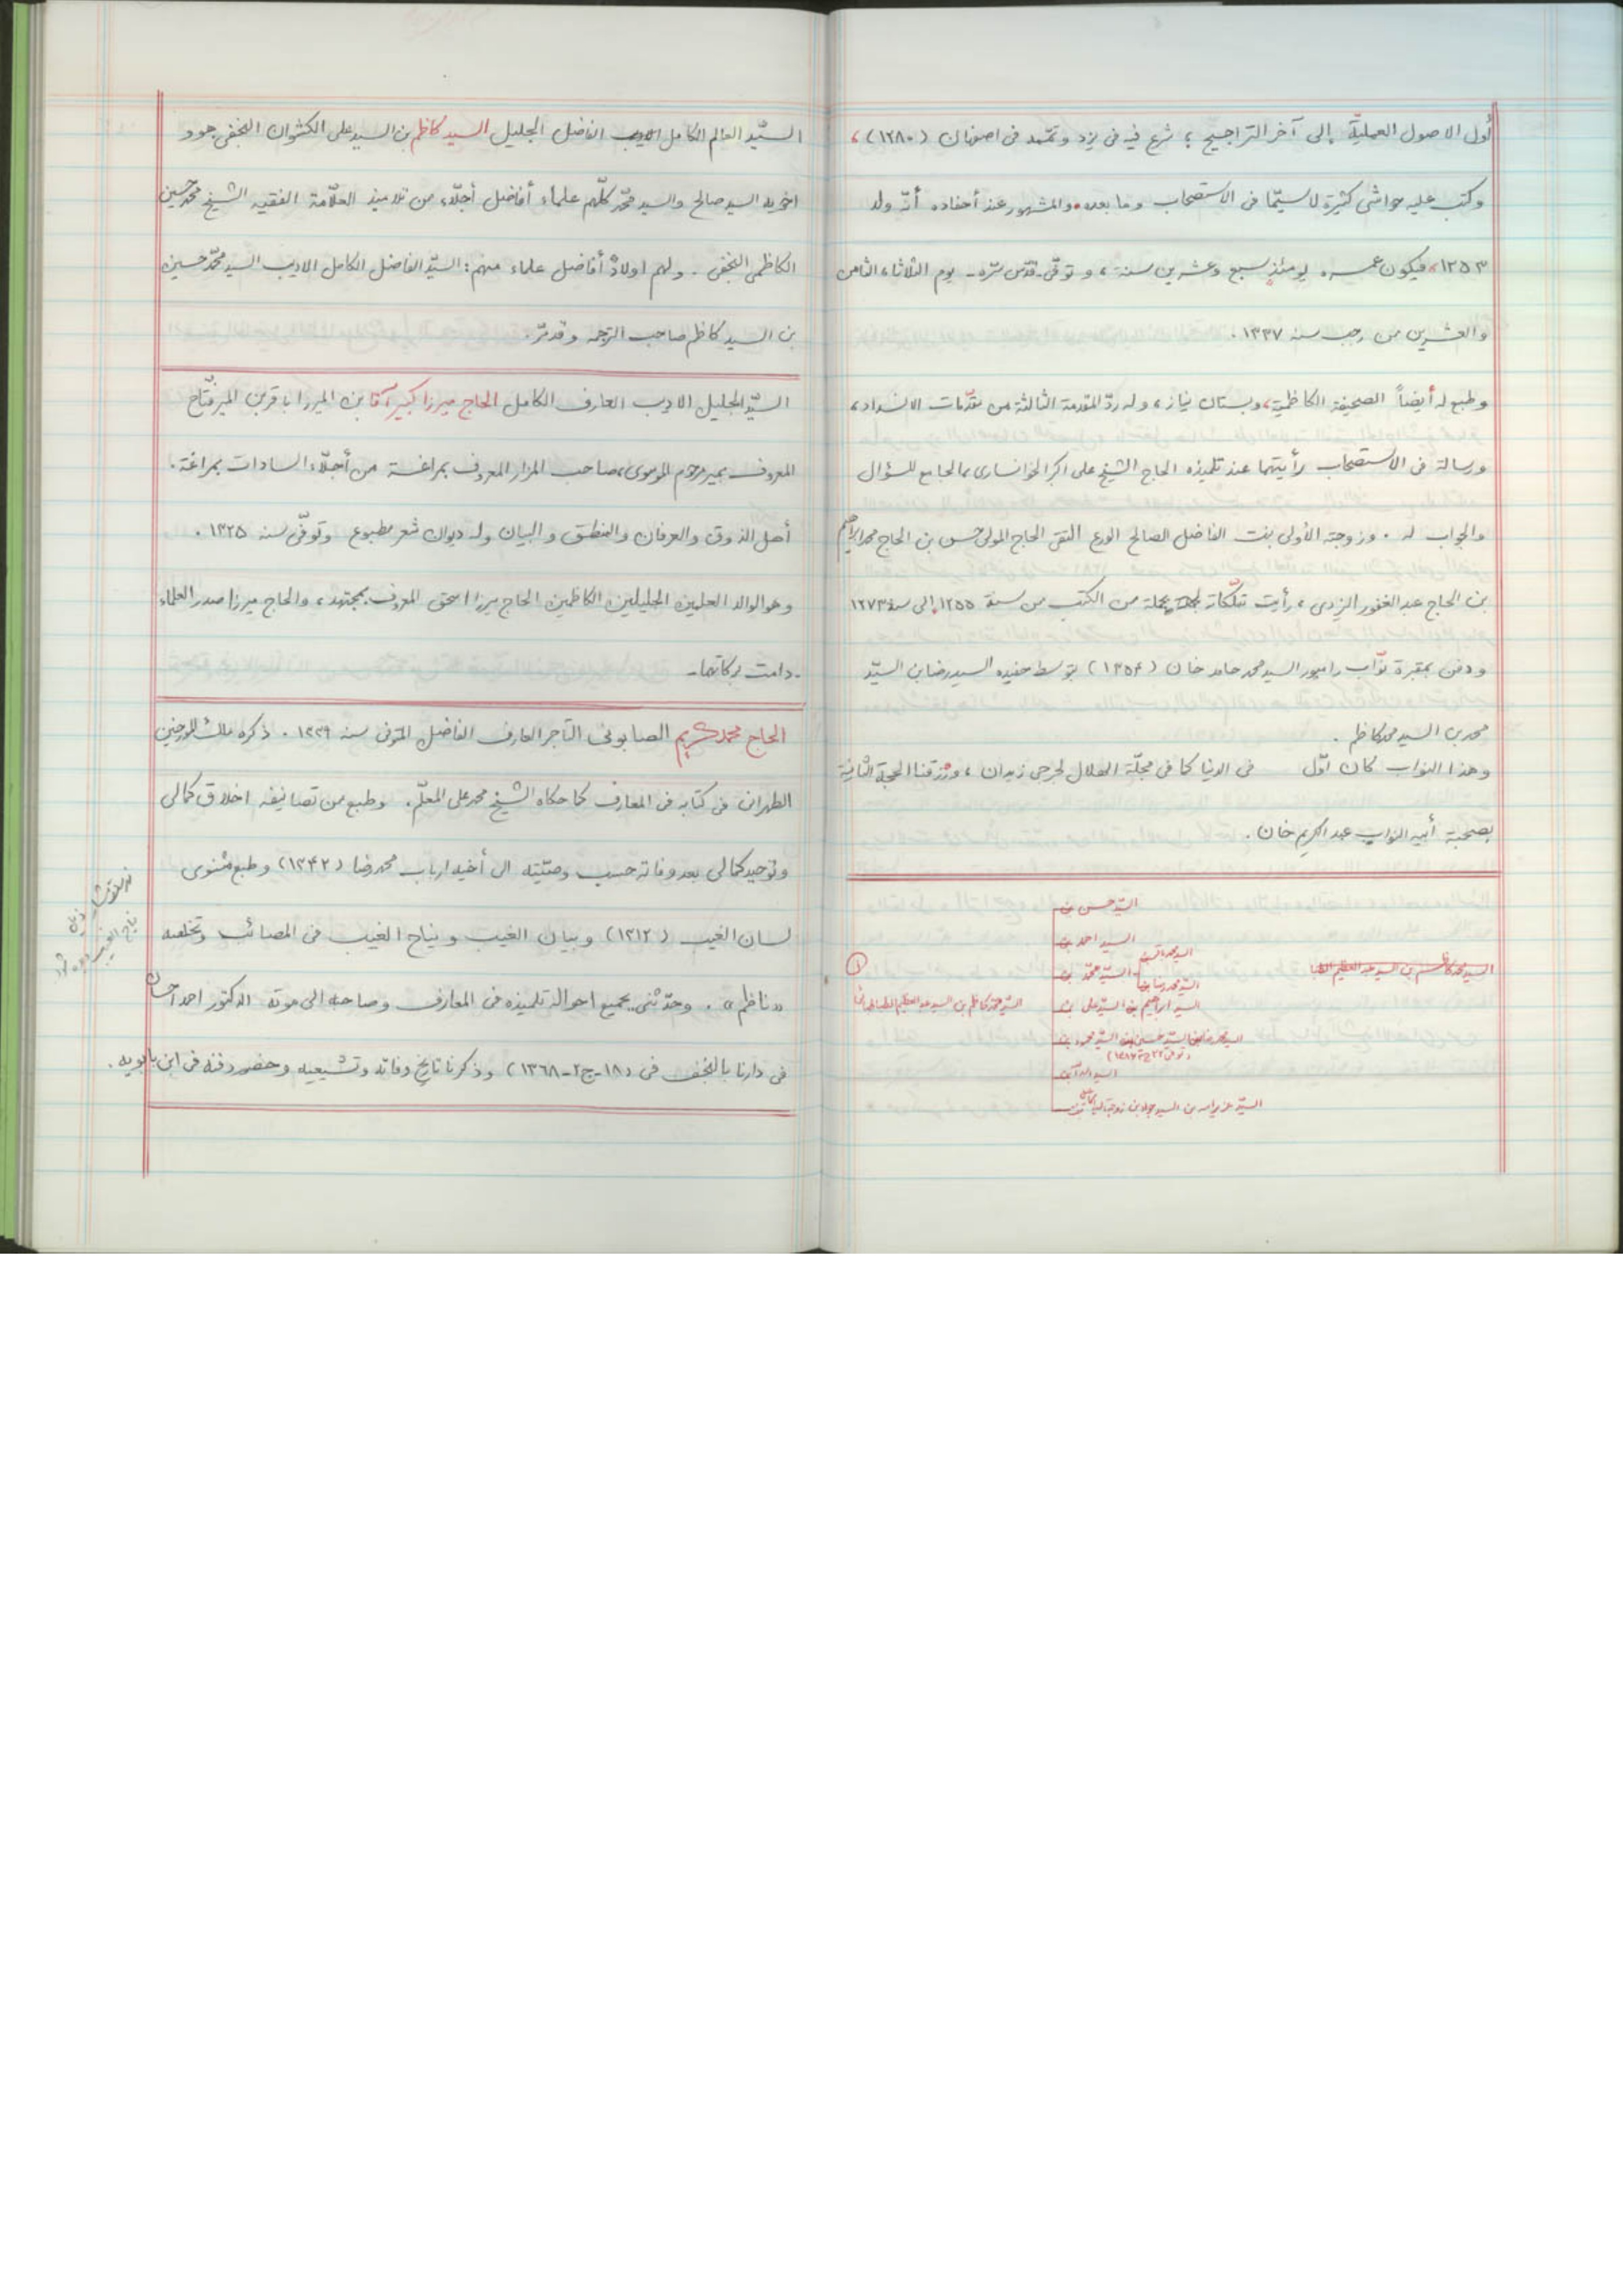 أول الاصول العمليّة إلى آخر التراجيح ؛ شرع فيه في يزد وتمّمه في اصفهان (١٢٨٠) ،
وكتب عليه حواشي كثيرة لاسيّما في الاستصحاب وما بعده والمشهور عند أحفاده أنّه ولد
١٢٥٣، فيكون عمره يومئذٍ سبع وعشرين سنة ، و توفّي ـ قدّس سرّه ـ يوم الثلاثاء الثامن
والعشرين من رجب سنه ١٣٣٧ .
وطبع له أيضاً الصحيفة الكاظمية ، وبستان نياز ، وله ردّ المقدمة الثالثة من مقدّمات الانسداد ،
ورسالة في الاستصحاب رأيتهما عند تلميذه الحاج الشيخ علي اكبر الخوانساري الجامع للسؤال
والجواب له . وزوجته الأولى بنت الفاضل الصالح الورع التقي الحاج المولى حسن بن الحاج محمد ابراهيم
بن الحاج عبد الغفور اليزدي ، رأيت تملّكاته لجملة من الكتب من سنة ١٢٥٥ إلى سنة ١٢٧٣
ودفن بمقبرة نوّاب رامپور السيد محمد حامد خان (١٣٥٤) بتوسط حفيده السيد رضا بن السيّد
محمد بن السيد محمد كاظم .
وهذا النواب كان أوّل في الدنيا كما في مجلّة الهلال لجرجي زيدان ، ورزقنا الحجة الثانية
بصحبة أبيه النواب عبد الكريم خان .
السيّد حسن بن
السيد احمد بن
السيّد محمّد بن
السيد محمد رضا بن
السيد ابراهيم بن السيّد علي بن
السيد محمد كاظم بن السيد عبد العظيم الطباطبائي
السيد محمد كاظم بن السيد عبد العظيم الطبا
١
السيّد محمود بن
السيد اسد الله بن
السيّد العالم الكامل الاديب الفاضل الجليل السيد كاظم بن السيد علي الكشوان النجفي هو و
اخويه السيد صالح والسيد محمّد كلّهم علماء أفاضل أجلّاء من تلاميذ العلّامة الفقيه الشيخ محمد حسين
الكاظمي النجفي . ولهم اولادٌ أفاضل علماء منهم : السيّد الفاضل الكامل الاديب السيد محمّد حسين
بن السيد كاظم صاحب الترجمه وقد مرّ .
السيّد الجليل الاديب العارف الكامل الحاج ميرزا كبير آقا بن الميرزا باقر بن المير فتّاح
المعروف بمير مرحوم الموسوي ، صاحب المزار المعروف بمراغة من أجلّاء السادات بمراغة .
أهل الذوق والعرفان والمنطق والبيان وله ديوان شعر مطبوع وتوفّي سنه ١٣٢٥ .
وهو الوالد العلمين الجليلين الكاظمين الحاج ميرزا اسحق المعروف بمجتهد ، والحاج ميرزا صدر العلماء
ـ دامت بركاتهما ـ
الحاج محمد كريم الصابوني التاجر العارف الفاضل المتوفى سنه ١٣٣٩ . ذكره ملك المورخين
الطهراني في كتابه في المعارف كما حكاه الشيخ محمد علي المعلّم . وطبع من تصانيفه اخلاق كمالي
وتوحيد كمالي بعد وفاته حسب وصيّته الى أخيه ارباب محمد رضا (١٣٤٢) وطبع مثنوى
لسان الغيب (١٣١٢) وبيان الغيب ونياح الغيب في المصائب وتخلصه
«ناظم» . وحدّثني بجميع احواله تلميذه في المعارف وصاحبه الى موته الدكتور احمد احسان
في دارنا بالنجف في (١٨ـج٢ـ١٣٦٨) وذكرنا تاريخ وفاته وتشييعه وحضور دفنه في ابن بابويه .